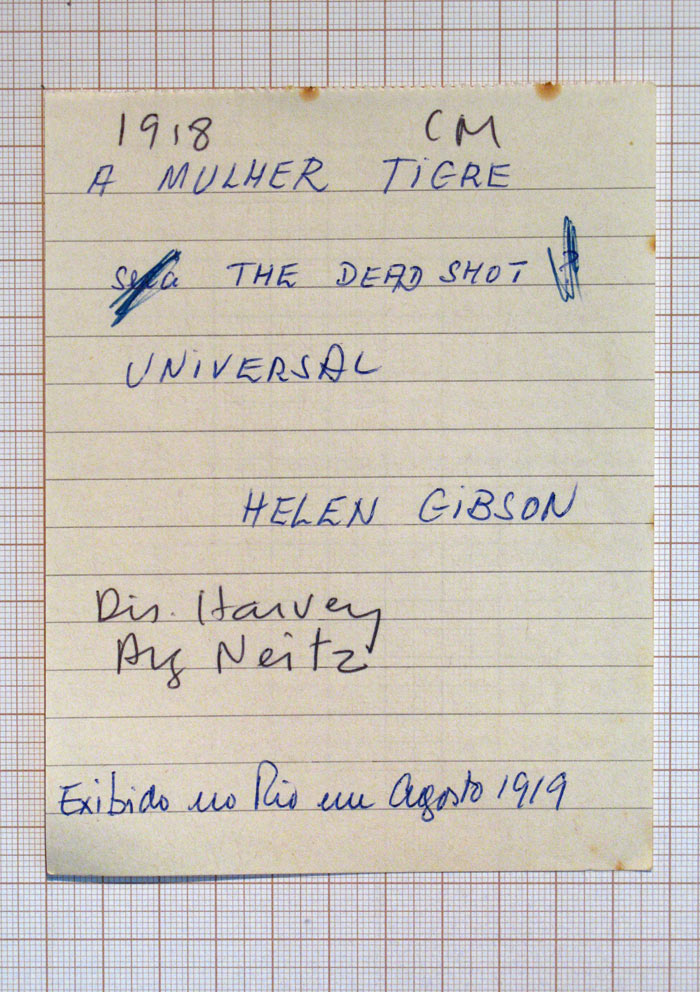 1918 CM
A MULHER TIGRE
será THE DEAD SHOT
UNIVERSAL
HELEN GIBSON
Dir. Harvey
Arg Neitz
Exibido no Rio em Agosto 1919